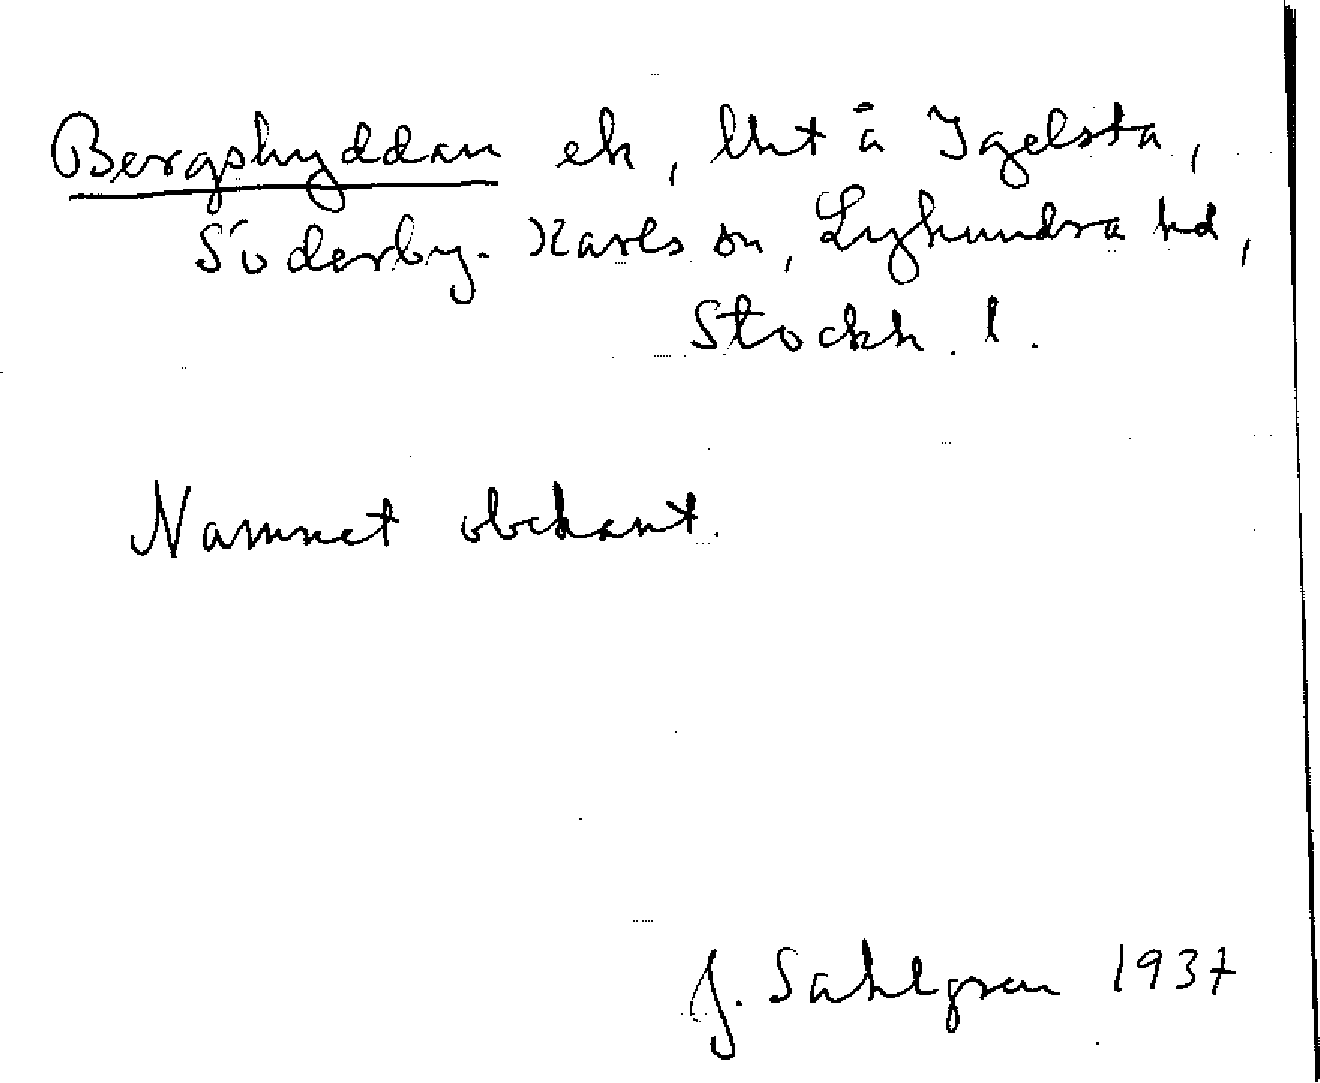 Bergshyddan ek, lht å Igelsta,
Söderby-Karls sn, Lyhundra hd,
Stockh. l.
Namnet obekant.
J. Sahlgren 1937